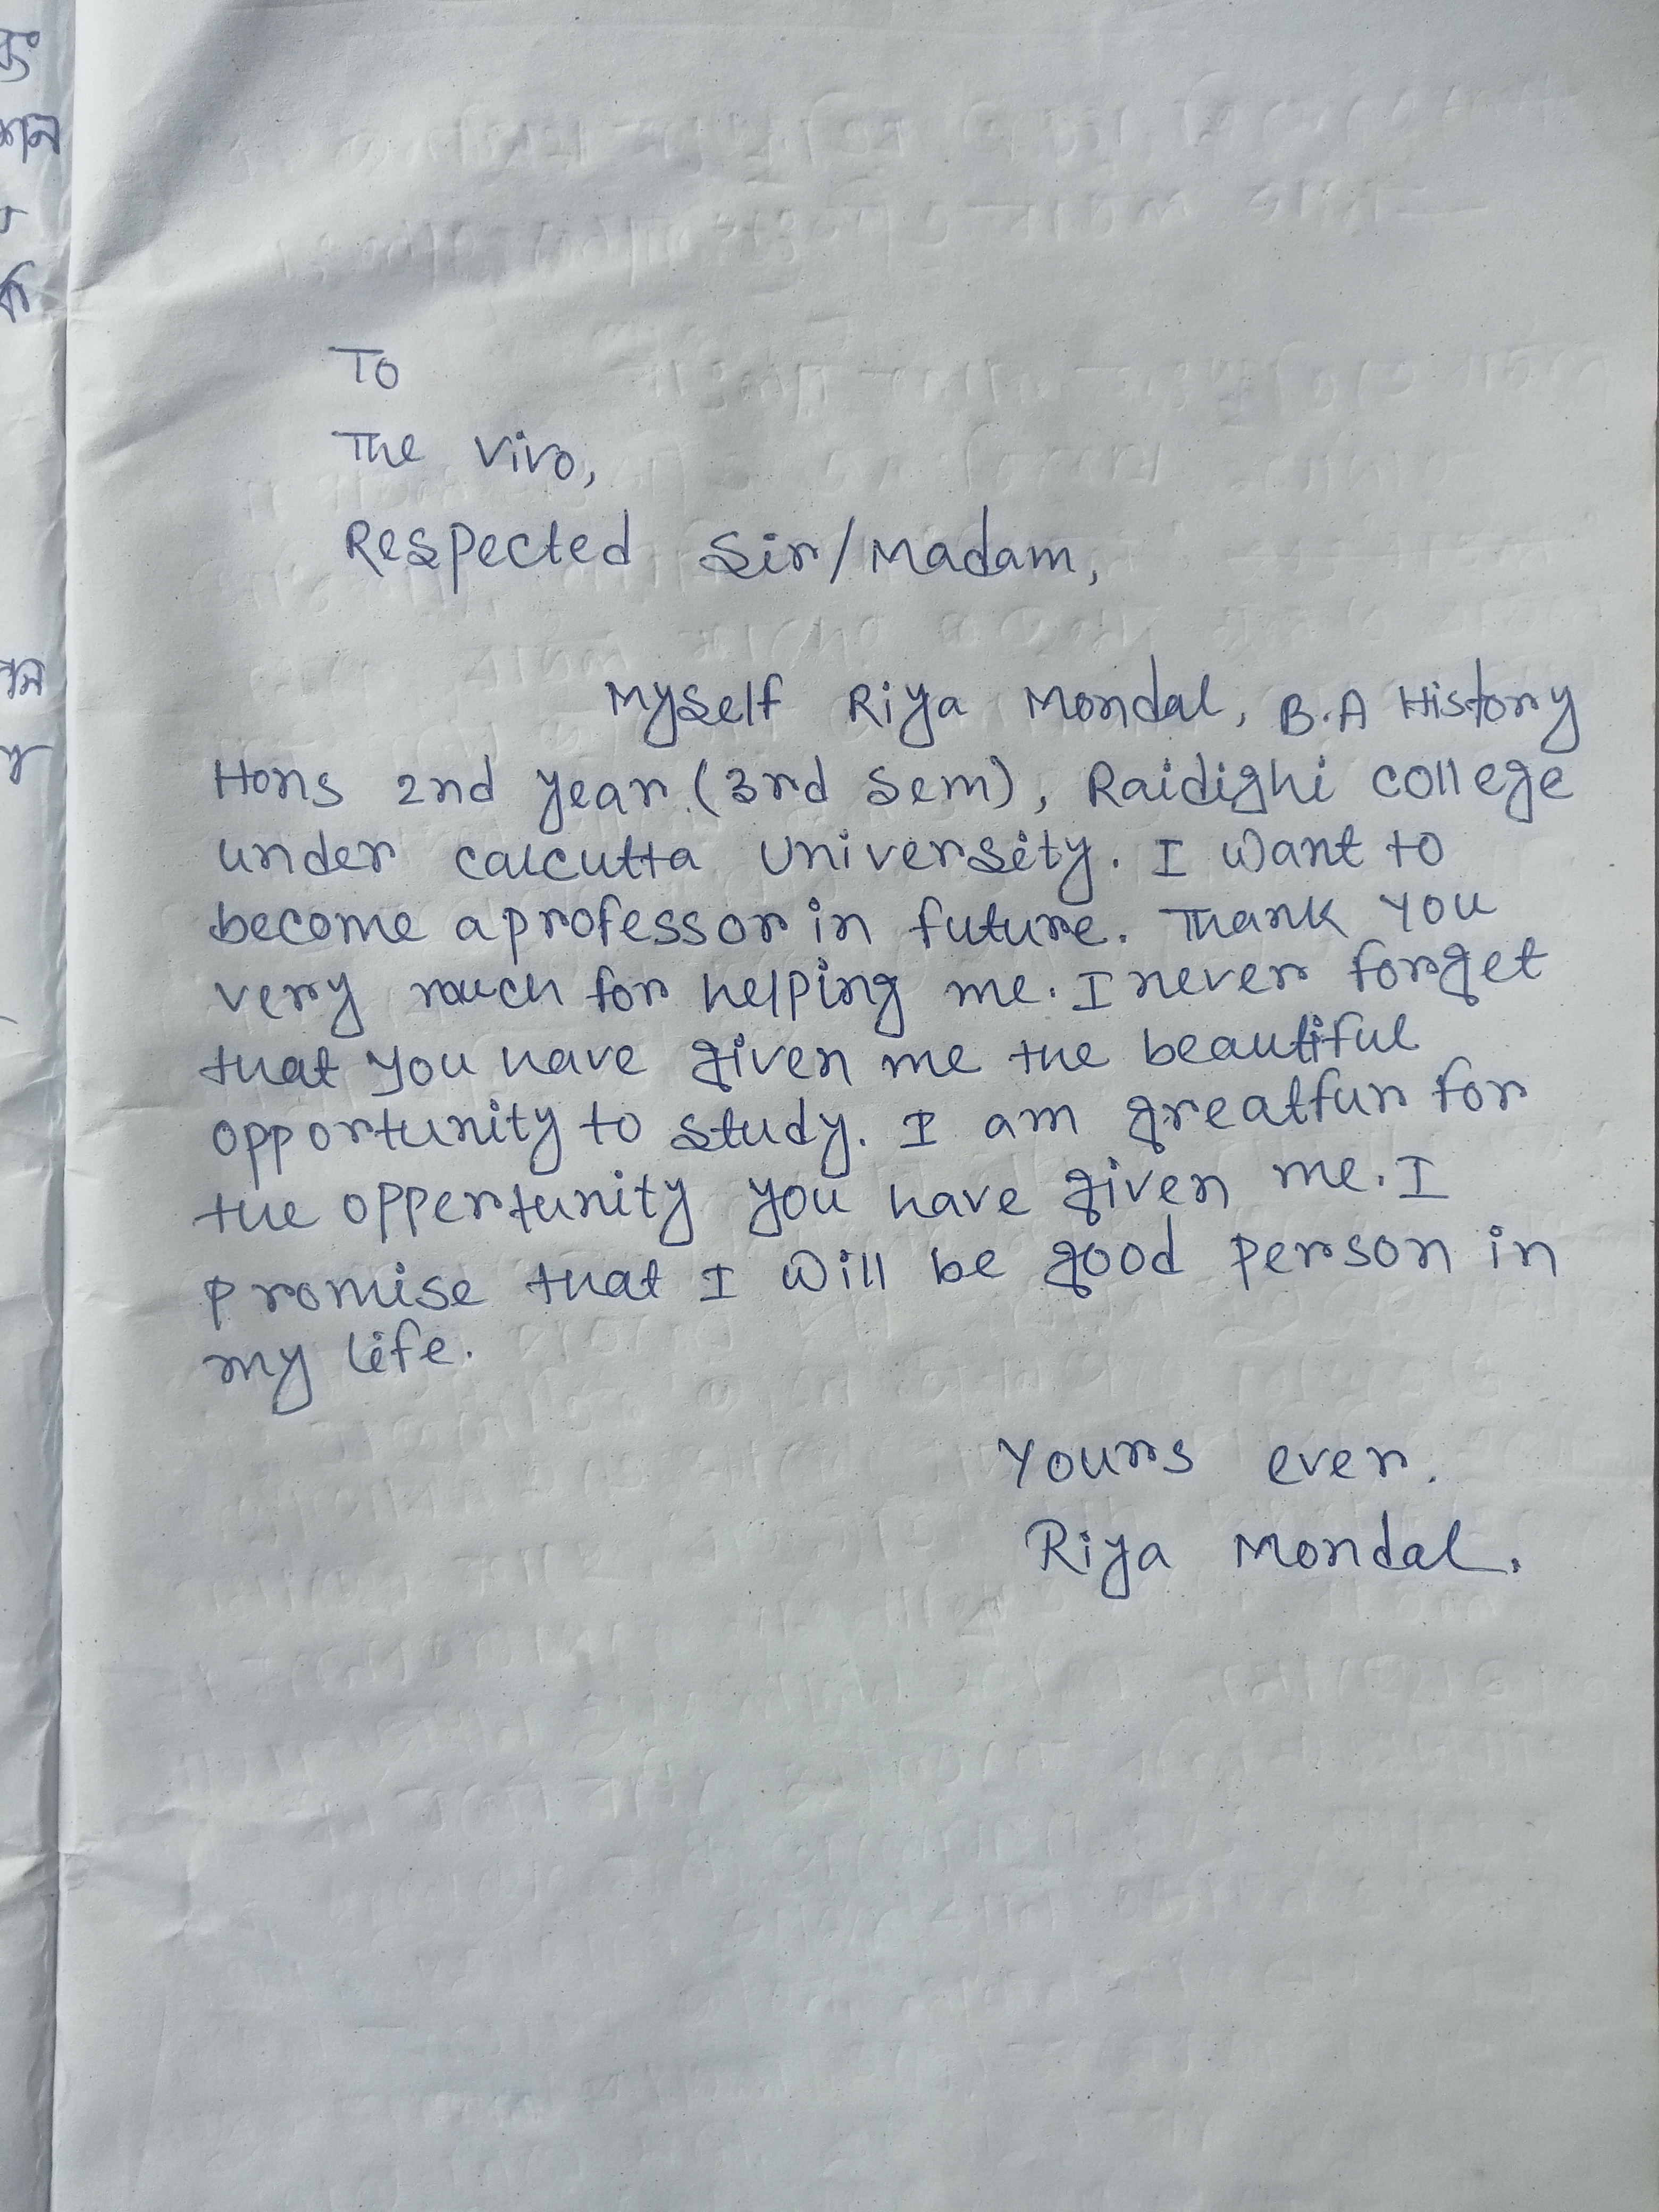 To
The Vivo,
Respected Sir/Madam,
Myself Riya Mondal, B.A History
Hons 2nd year.(3rd Sem), Raidighi college
under calcutta University. I want to
become a professor in future. Thank you
very much for helping me. I never forget
that you have given me the beautiful
opportunity to study. I am greatfur for
the oppertunity you have given me. I
promise that I will be good person in
my life.
Yours ever.
Riya Mondal.